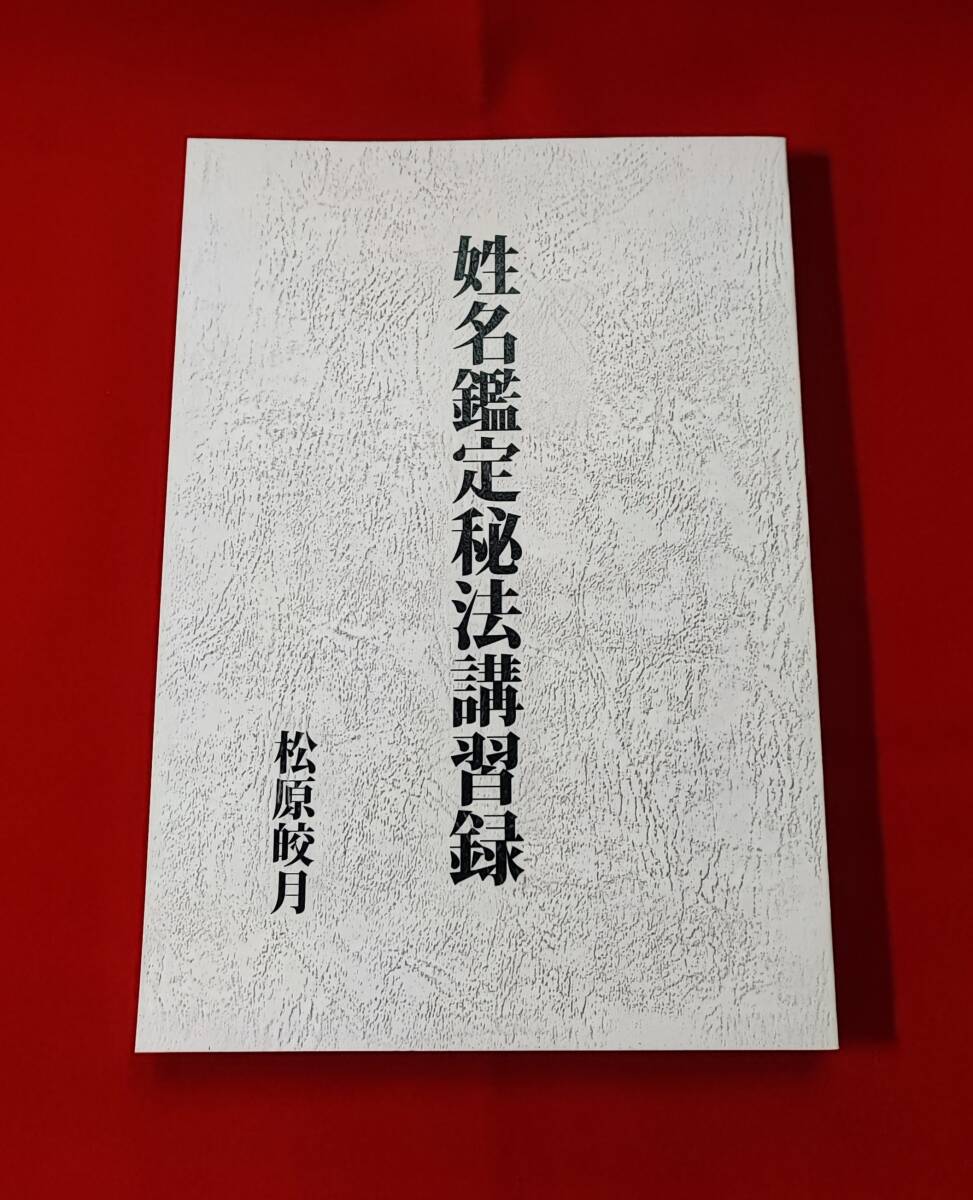 姓名鑑定秘法講習録
松原皎月